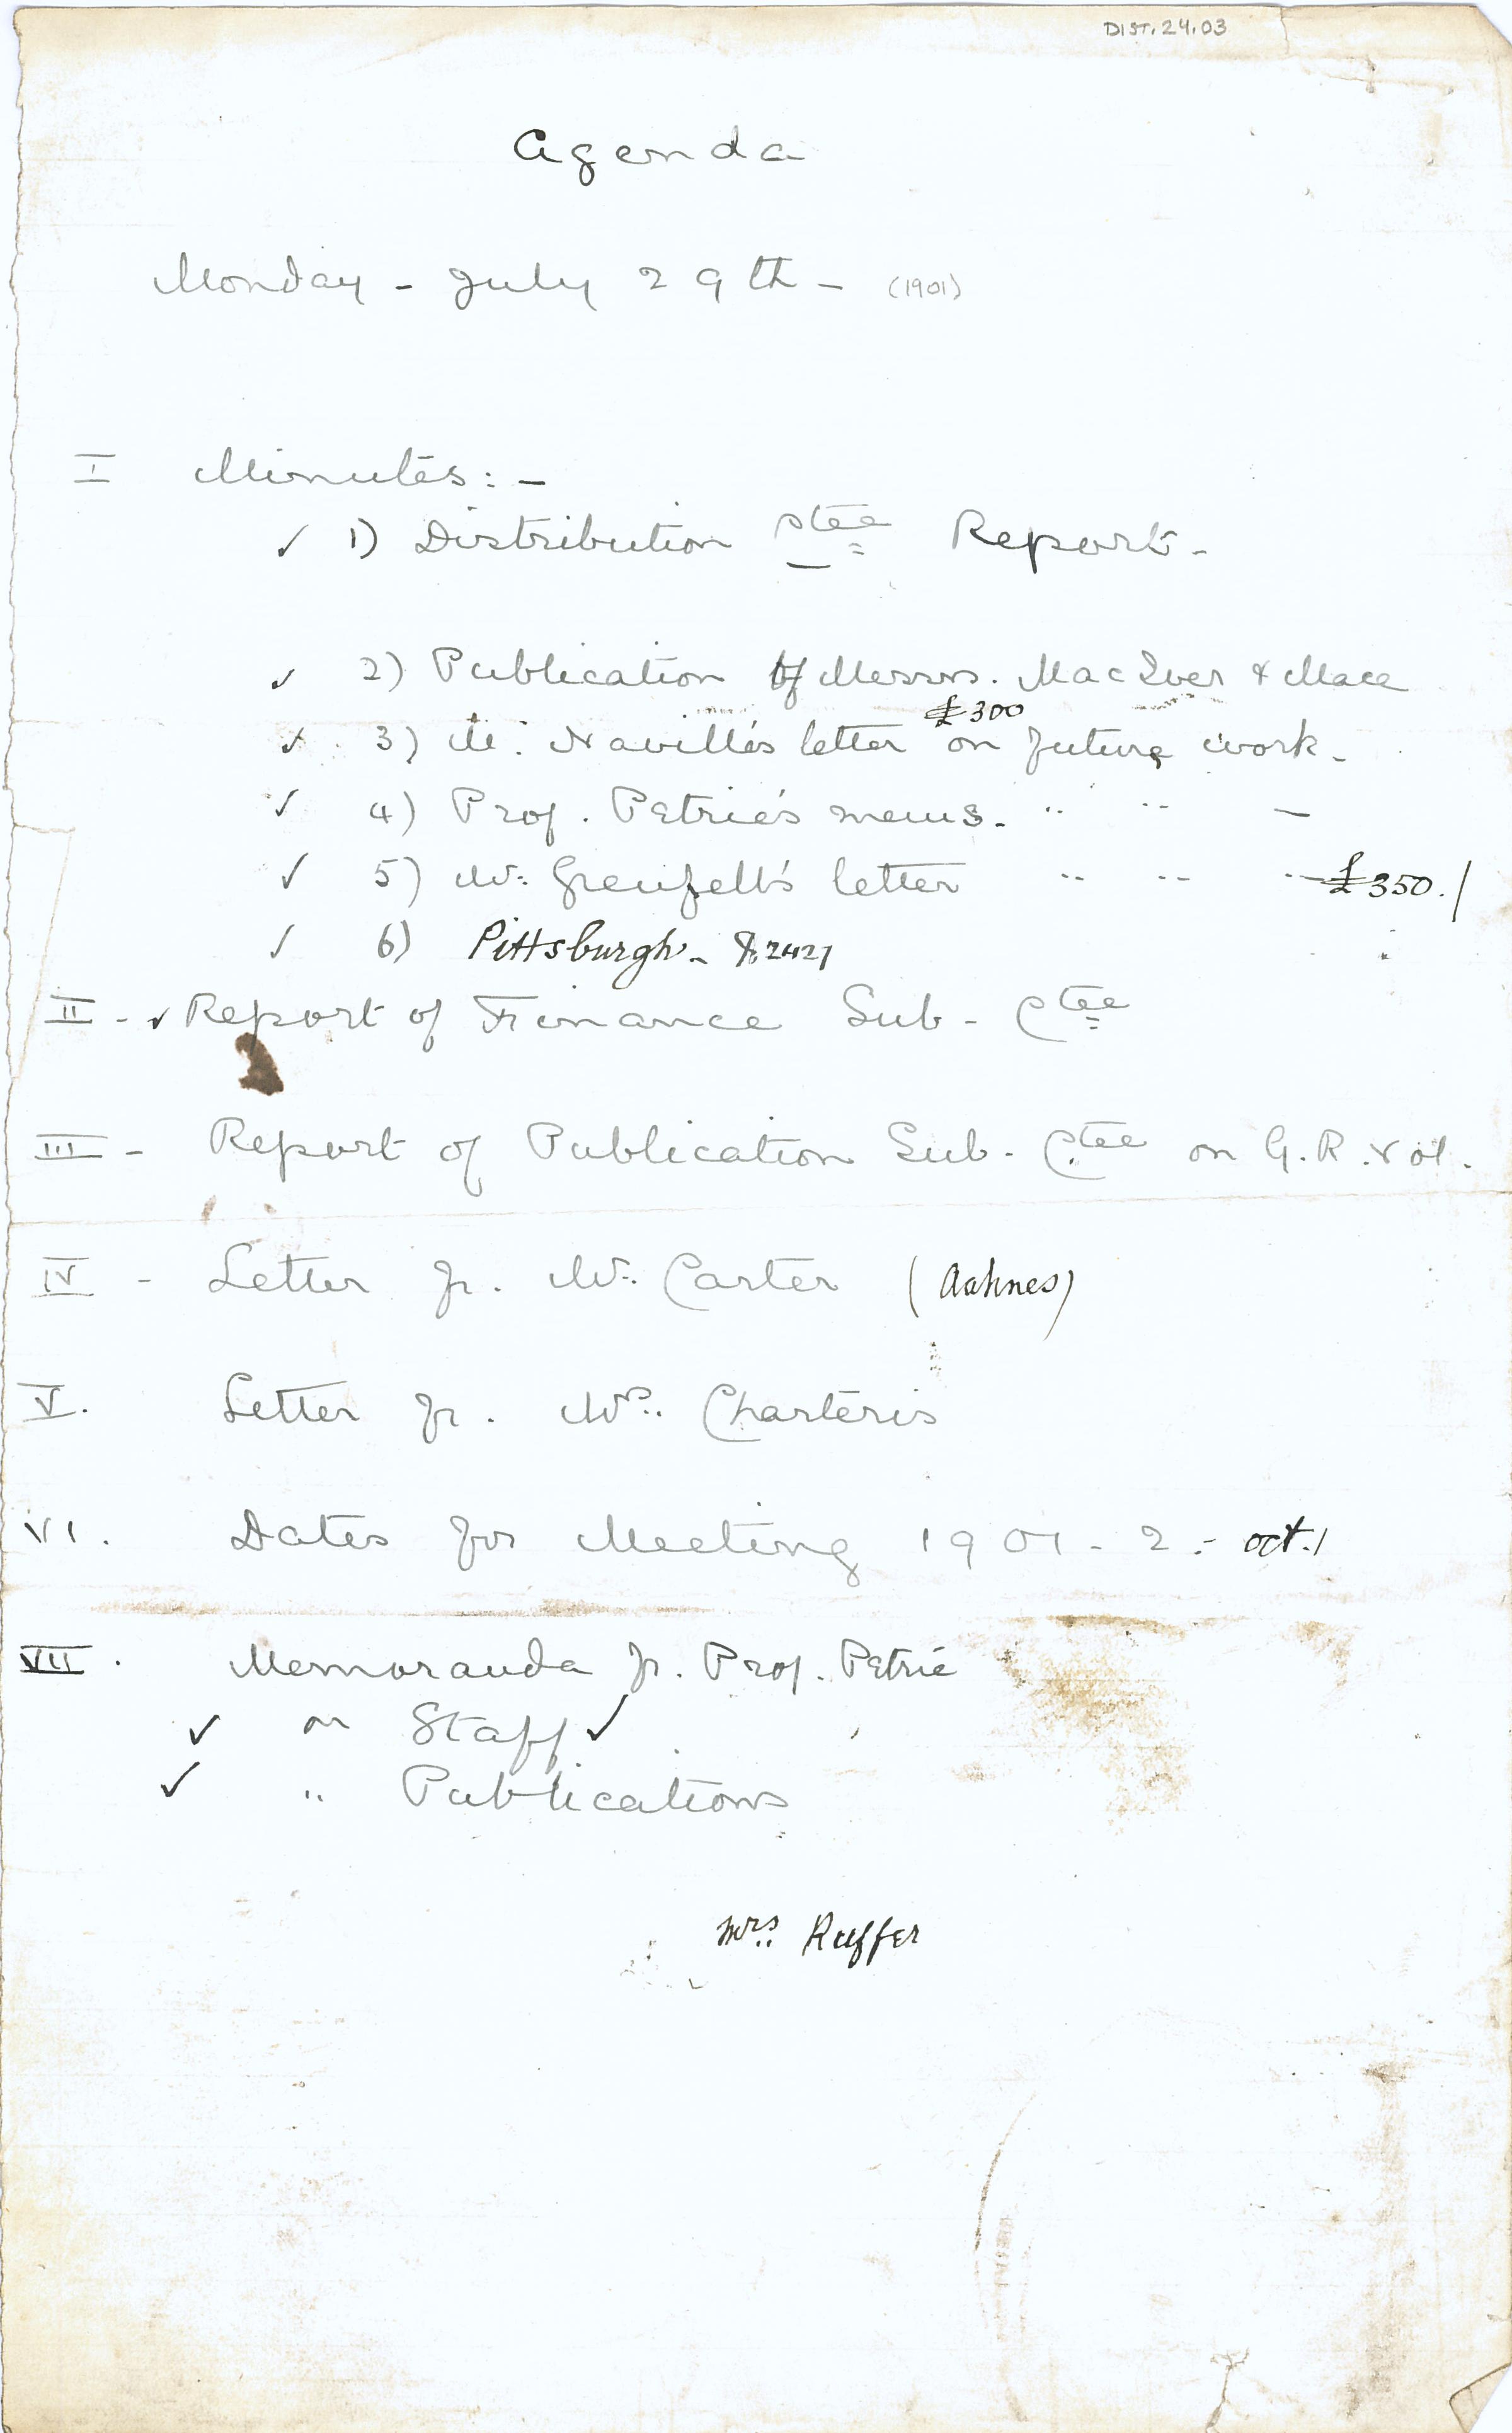 DIST.24.03
Agenda
Monday - July 29th - (1901)
I Minutes: -
✓ 1) Distribution Ctee Report -
✓ 2) Publication of Messrs. MacIver & Mace
£300
✓ 3) M. Naville's letter on future work -
✓ 4) Prof. Petrie's mems. " " -
✓ 5) Mr. Grenfell's letter " " " £350./
✓ 6) Pittsburgh -
II - ✓ Report of Finance Sub- Ctee
III - Report of Publication Sub- Ctee on G.R. vol.
IV - Letter fr. Mr. Carter (Aahnes)
V. Letter fr. Mrs. Charteris
VI. Dates for Meeting 1901-2 - oct. 1
VII. Memoranda fr. Prof. Petrie
✓ on Staff ✓
✓ " Publications
Mrs. Ruffer